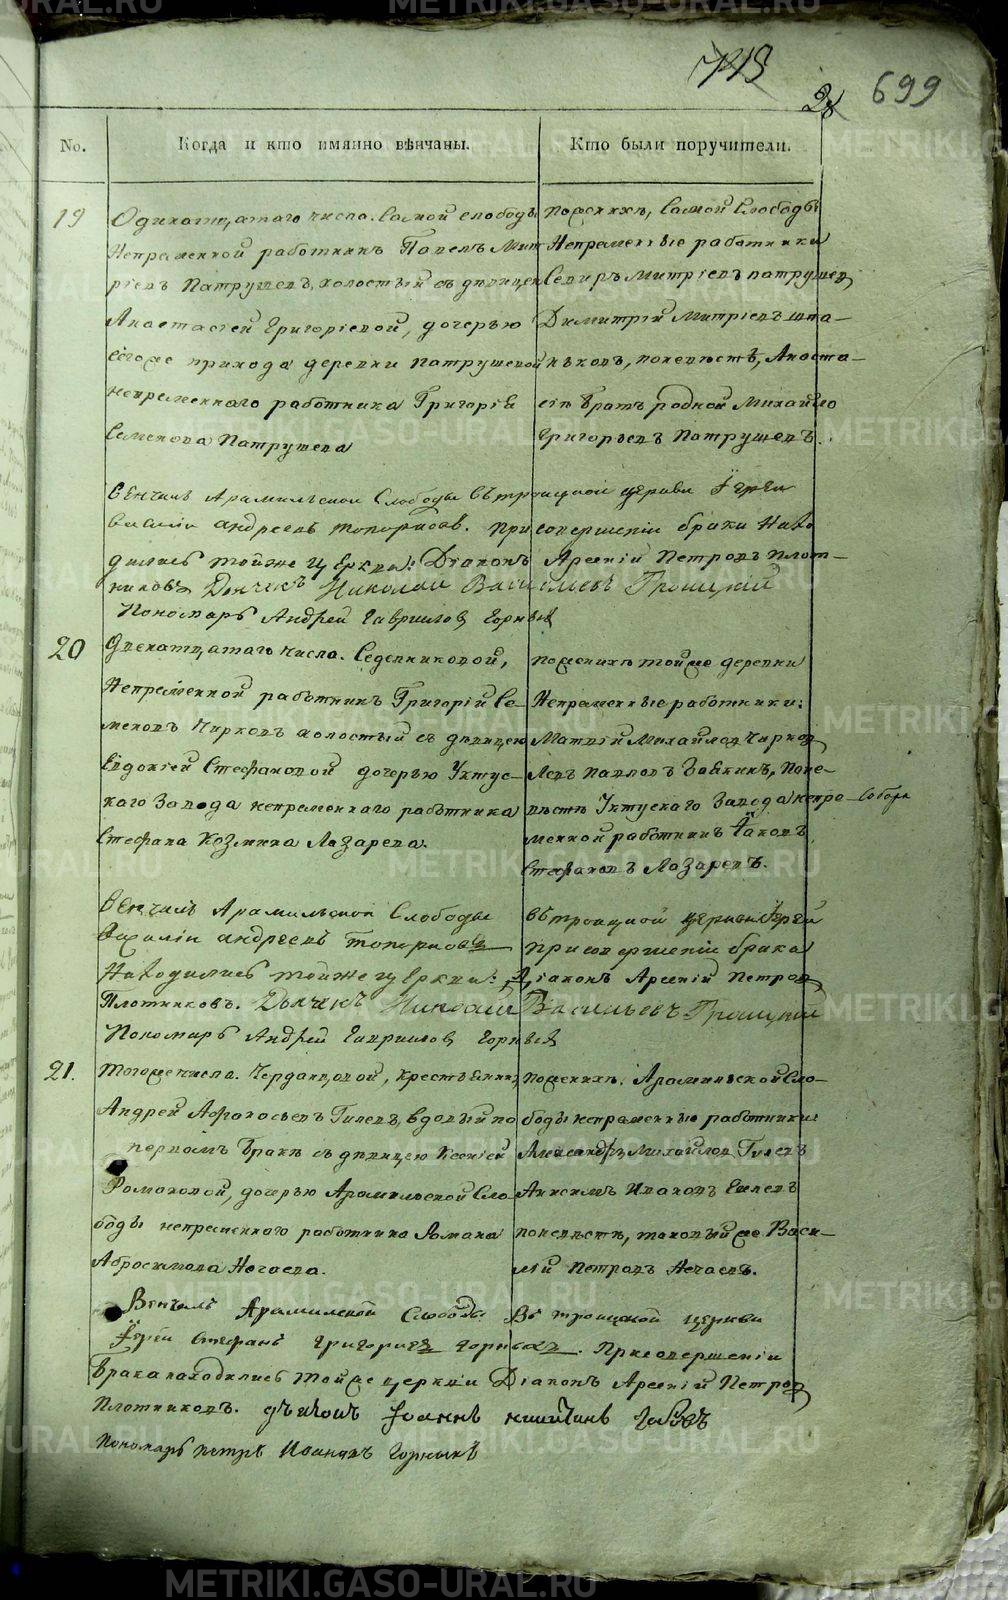 713
28 699
No. Когда и кто имянно вѣнчаны. Кто были поручители.
19
Одинатцатаго числа. Самой слободы
Непременной работникъ Павелъ Мит
ріевъ Патрушевъ, холостый съ девицею
Анастасіей Григоріевой, дочерью
сегоже прихода деревни Патрушевой
непременнаго работника Григорія
Семенова Патрушева
пожениху, Самой Слободы
Непременные работники
Митріевъ патрушев,
Димитрій Митріевъ шпа-
ньковъ, поневѣстѣ, Анаста-
сіи братъ родной Михайло
Григорьевъ Патрушевъ.
Венчалъ Арамильской Слободы въ троицкой церкви Іерей
Василій андреевъ топорковъ. При совершеніи брака Нахо
дились тойже церкви: Діаконъ Арсеній Петровъ Плот-
никовъ Дьячекъ Николай Васильевъ Троицкій
Пономарь Андрей Гавриловъ Горныхъ
20
Двенатцатаго числа. Седельниковой,
Непременной работникъ Григорій Се-
меновъ Чирковъ холостый съ девицею
Евдокіей Стефановой дочерью Уктус-
каго Завода непременнаго работника
Стефана Козмина Лазарева.
пожениху тойже деревни
Непременные работники:
Матвей Михайлов Чирков
Левъ Павловъ Бабкинъ, Поне-
вѣстѣ Уктускаго Завода непре-
менной работникъ Іаковъ
Стефановъ Лазаревъ.
Венчалъ Арамильской Слободы въ троицкой церкви Іерей
Василій андреевъ топорковъ присовершеніи брака
Находились тойже церкви: Діаконъ Арсеній Петров
Плотниковъ. Дьячекъ Николай Васильевъ Троицкій
Пономарь Андрей Гавриловъ Горныхъ
21.
Тогоже числа. Черданцовой, крестьянинъ
Андрей Афонасьевъ Гилевъ, вдовый по
первомъ бракѣ съ девицею Ксеніей
Романовой, дочерью Арамильской Сло
боды непременнаго работника Романа
Абросимова Нечаева.
пожениху. Арамильской Сло-
боды непременные работники
Александръ Михайлов Гилевъ
Анисимъ Ивановъ Гилевъ
поневѣстѣ, таковыйже Васи-
лій Петровъ Нечаевъ.
Венчалъ Арамилской Слободы Въ троицкой церкви
Іерей Стефанъ Григорьевъ Горныхъ. Присовершеніи
брака находились тойже церкви Діаконъ Арсеній Петров
Плотниковъ. дьячокъ Іоаннъ никитинъ
Пономарь петръ Ивановъ Горныхъ
METRIKI.GASO-URAL.RU